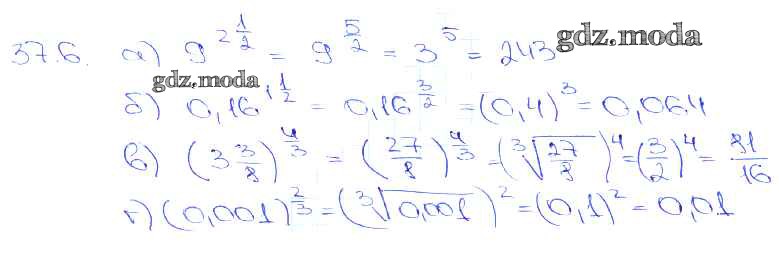 37.6. а) 9^{2\frac{1}{2}} = 9^{\frac{5}{2}} = 3^5 = 243 gdz.moda
gdz.moda
б) 0,16^{1\frac{1}{2}} = 0,16^{\frac{3}{2}} = (0,4)^3 = 0,064
в) (3\frac{3}{8})^{\frac{4}{3}} = (\frac{27}{8})^{\frac{4}{3}} = (\sqrt[3]{\frac{27}{8}})^4 = (\frac{3}{2})^4 = \frac{81}{16}
г) (0,001)^{\frac{2}{3}} = (\sqrt[3]{0,001})^2 = (0,1)^2 = 0,01